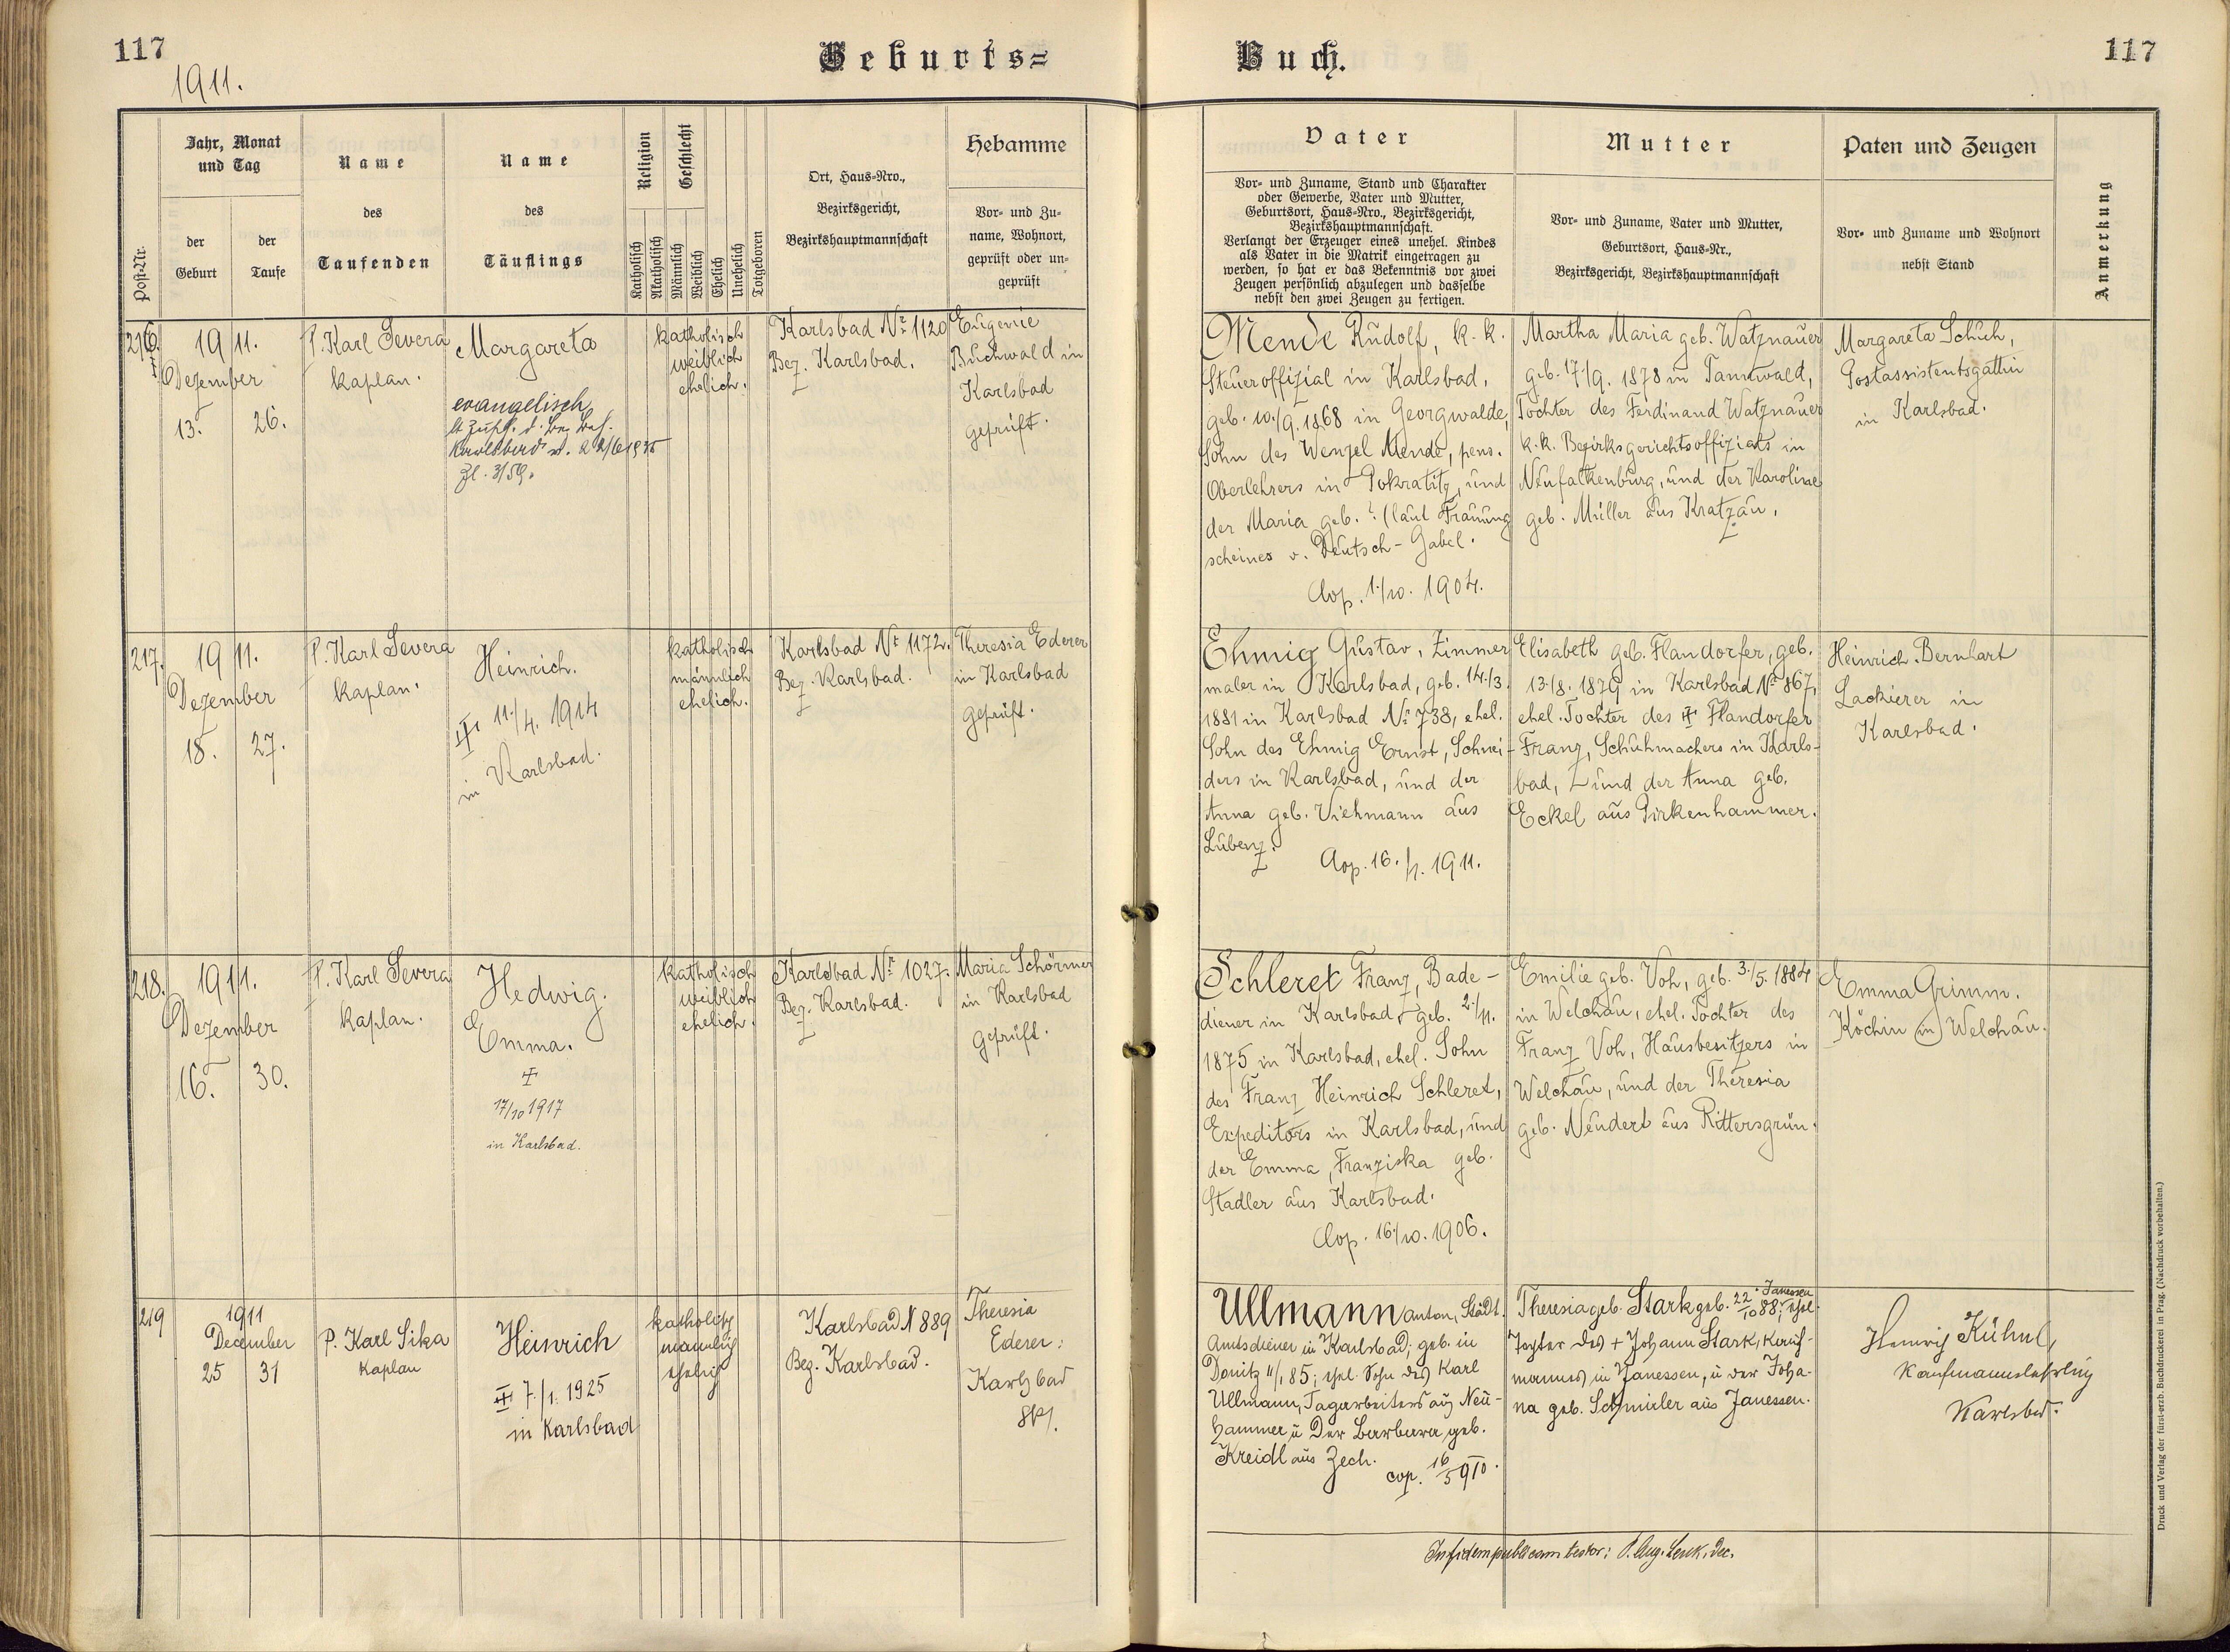 117
1911.
Geburts=
Buch.
117
Post-Nr.
Jahr, Monat
und Tag
der
Geburt
der
Taufe
Name
des
Taufenden
Name
des
Täuflings
Religion
Katholisch
Akatholisch
Geschlecht
Männlich
Weiblich
Ehelich
Unehelich
Totgeboren
Ort, Haus-Nro.,
Bezirksgericht,
Bezirkshauptmannschaft
Hebamme
Vor- und Zu-
name, Wohnort,
geprüft oder un-
geprüft
Vater
Vor- und Zuname, Stand und Charakter
oder Gewerbe, Vater und Mutter,
Geburtsort, Haus-Nro., Bezirksgericht,
Bezirkshauptmannschaft.
Verlangt der Erzeuger eines unehel. Kindes
als Vater in die Matrik eingetragen zu
werden, so hat er das Bekenntnis vor zwei
Zeugen persönlich abzulegen und dasselbe
nebst den zwei Zeugen zu fertigen.
Mutter
Vor- und Zuname, Vater und Mutter,
Geburtsort, Haus-Nr.,
Bezirksgericht, Bezirkshauptmannschaft
Paten und Zeugen
Vor- und Zuname und Wohnort
nebst Stand
Anmerkung
216.
1911.
Dezember
13. 26.
P. Karl Severa
Kaplan.
Margareta
evangelisch
Karlsbad
Zl. 3/59.
katholisch
weiblich
ehelich.
Karlsbad Nr 1120
Bez. Karlsbad.
Eugenie
Buchwald in
Karlsbad
geprüft.
Mende Rudolf, k. k.
Steueroffizial in Karlsbad,
geb. 10./9. 1868 in Georgwalde,
Sohn des Wenzel Mende, pens.
Oberlehrers in Pokratitz, und
der Maria geb. ? (laut Trauung
scheines v. Deutsch-Gabel.
Cop. 1./10. 1904.
Martha Maria geb. Watznauer
geb. 17/9. 1878 in Tannwald,
Tochter des Ferdinand Watznauer
k.k. Bezirksgerichtsoffizials in
Neufalkenburg, und der Karoline
geb. Müller aus Kratzau.
Margareta Schuh,
Postassistentsgattin
in Karlsbad.
217.
1911.
Dezember
18. 27.
P. Karl Severa
Kaplan.
Heinrich.
11./4. 1914
in Karlsbad.
katholisch
männlich
ehelich.
Karlsbad Nr 1172.
Bez. Karlsbad.
Theresia Ederer
in Karlsbad
geprüft.
Ehmig Gustav, Zimmer
maler in Karlsbad, geb. 14./3.
1881 in Karlsbad Nr 738, ehel.
Sohn des Ehmig Ernst, Schnei-
ders in Karlsbad, und der
Anna geb. Viehmann aus
Lubenz.
Cop. 16./ 1911.
Elisabeth geb. Flandorfer, geb.
13./8. 1879 in Karlsbad Nr 867,
ehel. Tochter des Flandorfer
Franz, Schuhmachers in Karls-
bad, und der Anna geb.
Eckel aus Pirkenhammer.
Heinrich Bernhart
Lackierer in
Karlsbad.
218.
1911.
Dezember
16. 30.
P. Karl Severa
Kaplan.
Hedwig.
Emma.
17/10 1917
in Karlsbad.
katholisch
weiblich
ehelich.
Karlsbad Nr 1027.
Bez. Karlsbad.
Maria Schörner
in Karlsbad
geprüft.
Schleret Franz, Bade-
diener in Karlsbad, geb. 2./11.
1875 in Karlsbad, ehel. Sohn
des Franz Heinrich Schleret,
Expeditors in Karlsbad, und
der Emma, Franziska geb.
Stadler aus Karlsbad.
Cop. 16./10. 1906.
Emilie geb. Voh, geb. 3./5. 1884
in Welchau, ehel. Tochter des
Franz Voh, Hausbesitzers in
Welchau, und der Theresia
geb. Neudert aus Rittersgrün.
Emma Grimm.
Köchin in Welchau.
219
1911
December
25 31
P. Karl Sika
Kaplan
Heinrich
7./1. 1925
in Karlsbad
katholisch
männlich
ehelich
Karlsbad N 889
Bez. Karlsbad.
Theresia
Ederer:
Karlsbad
Ullmann Anton, Städt.
Amtsdiener in Karlsbad; geb. in
Donitz 11/1 85; ehel. Sohn des Karl
Ullmann, Tagarbeiters aus Neu-
hammer u der Barbara geb.
Kreidl aus Zech.
cop. 16/5 910.
Theresia geb. Stark geb. 22/10 88; Janessen ehel.
Tochter des + Johann Stark,
mannes in Janessen, u der Joha-
na geb. Schmieler aus Janessen.
Heinrich Kühnl,
Kaufmannslehrling
Karlsbad.
In fidem publicam testor: P. Aug. Lenk, Dec.
Druck und Verlag der fürst-erzb. Buchdruckerei in Prag. (Nachdruck vorbehalten.)